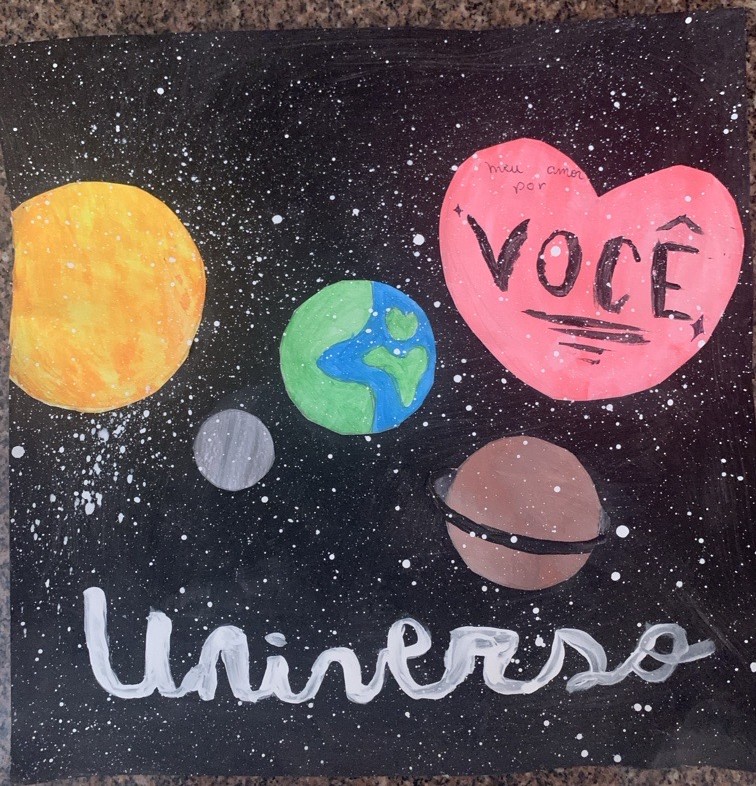 meu amor
por
VOCÊ
Universo